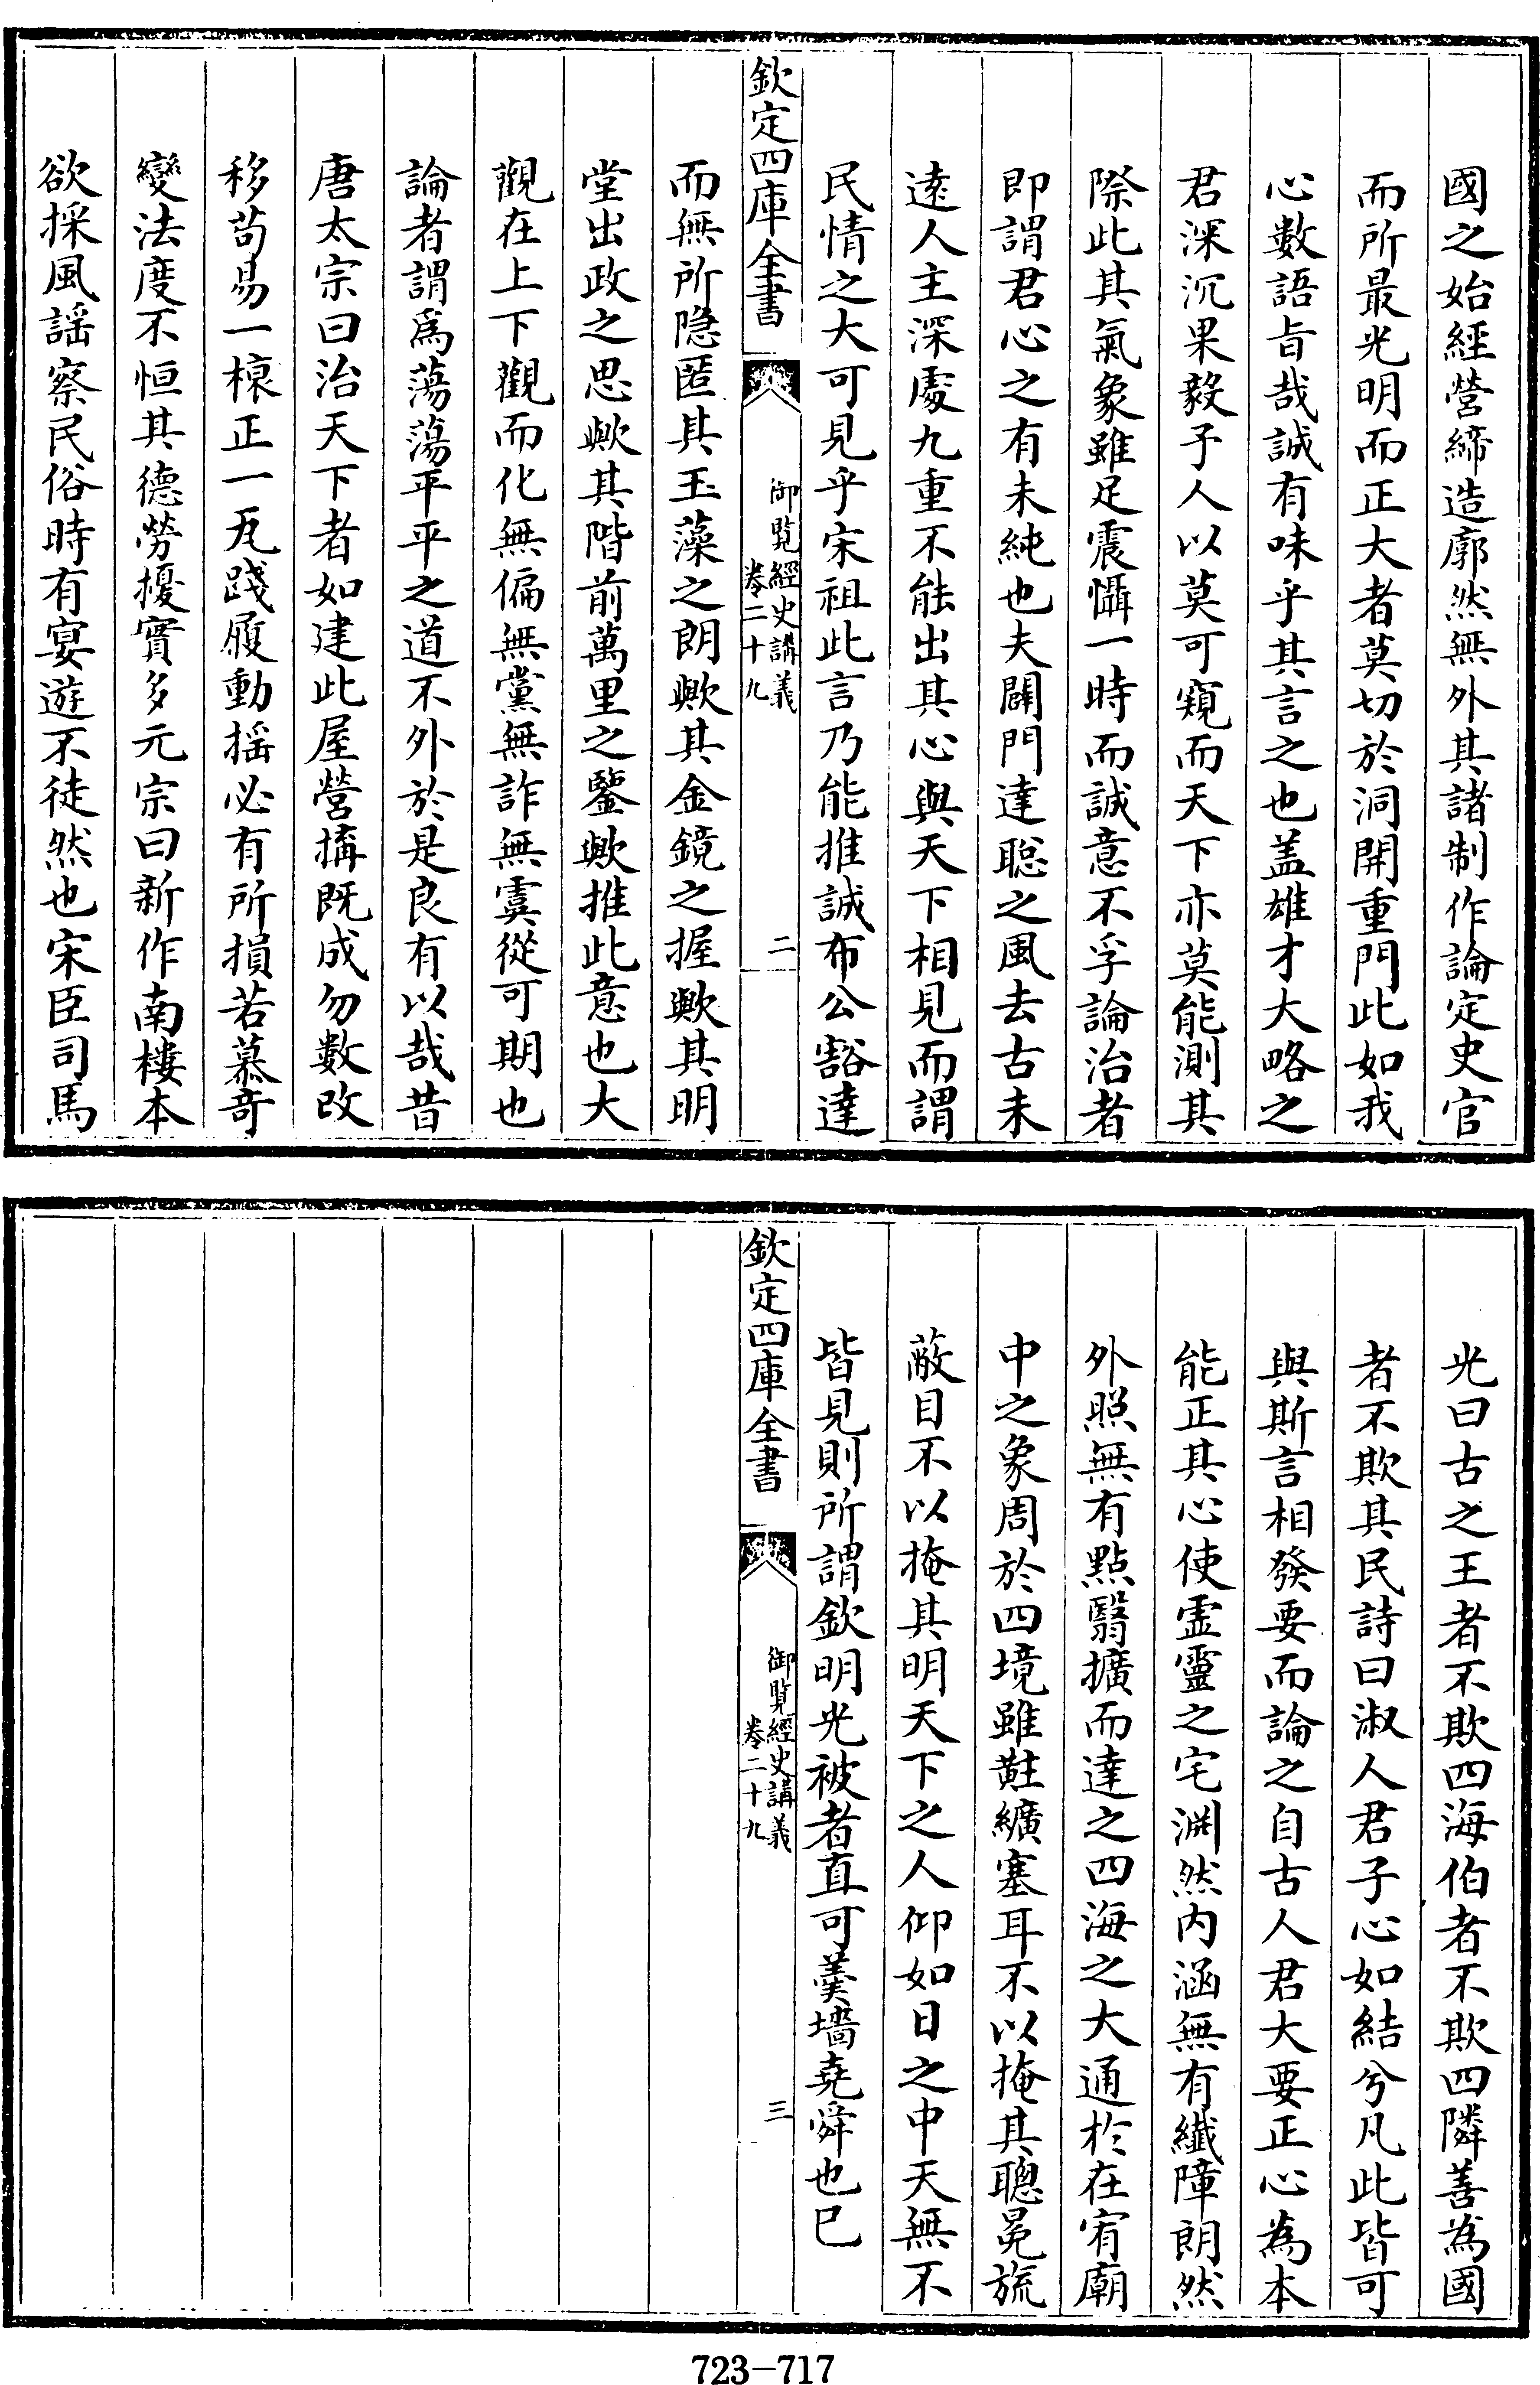 國之始經營締造廓然無外其諸制作論定史官
而所最光明而正大者莫切於洞開重門此如我
心數語旨哉誠有味乎其言之也盖雄才大略之
君深沉果毅予人以莫可窺而天下亦莫能測其
際此其氣象雖足震懾一時而誠意不孚論治者
即謂君心之有未純也夫闢門達聰之風去古未
遠人主深處九重不能出其心與天下相見而謂
民情之大可見乎宋祖此言乃能推誠布公豁達
欽定四庫全書
御覽經史講義
卷二十九
二
而無所隐匿其玉藻之朗歟其金鏡之握歟其明
堂出政之思歟其階前萬里之鑒歟推此意也大
觀在上下觀而化無偏無黨無詐無虞從可期也
論者謂爲蕩蕩平平之道不外於是良有以哉昔
唐太宗曰治天下者如建此屋營搆既成勿數改
移苟易一榱正一瓦踐履動揺必有所損若慕竒
變法度不恒其德勞擾實多元宗曰新作南樓本
欲採風謡察民俗時有宴遊不徒然也宋臣司馬
光曰古之王者不欺四海伯者不欺四隣善為國
者不欺其民詩曰淑人君子心如結兮凡此皆可
與斯言相發要而論之自古人君大要正心為本
能正其心使虛靈之宅淵然内涵無有纖障朗然
外照無有點翳擴而達之四海之大通於在宥廟
中之象周於四境雖黈纊塞耳不以掩其聰冕旒
蔽目不以掩其明天下之人仰如日之中天無不
皆見則所謂欽明光被者直可羹墻堯舜也已
欽定四庫全書
御覽經史講義
卷二十九
三
723-717